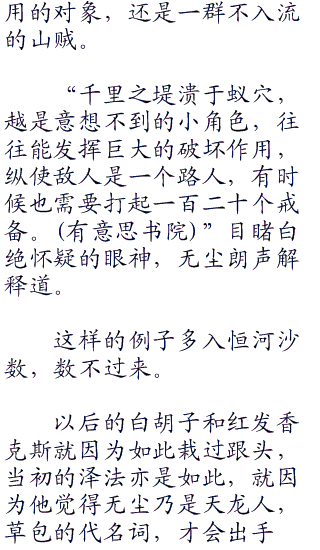 用的对象，还是一群不入流
的山贼。
“千里之堤溃于蚁穴，
越是意想不到的小角色，往
往能发挥巨大的破坏作用，
纵使敌人是一个路人，有时
候也需要打起一百二十个戒
备。(有意思书院)”目睹白
绝怀疑的眼神，无尘朗声解
释道。
这样的例子多入恒河沙
数，数不过来。
以后的白胡子和红发香
克斯就因为如此栽过跟头，
当初的泽法亦是如此，就因
为他觉得无尘乃是天龙人，
草包的代名词，才会出手